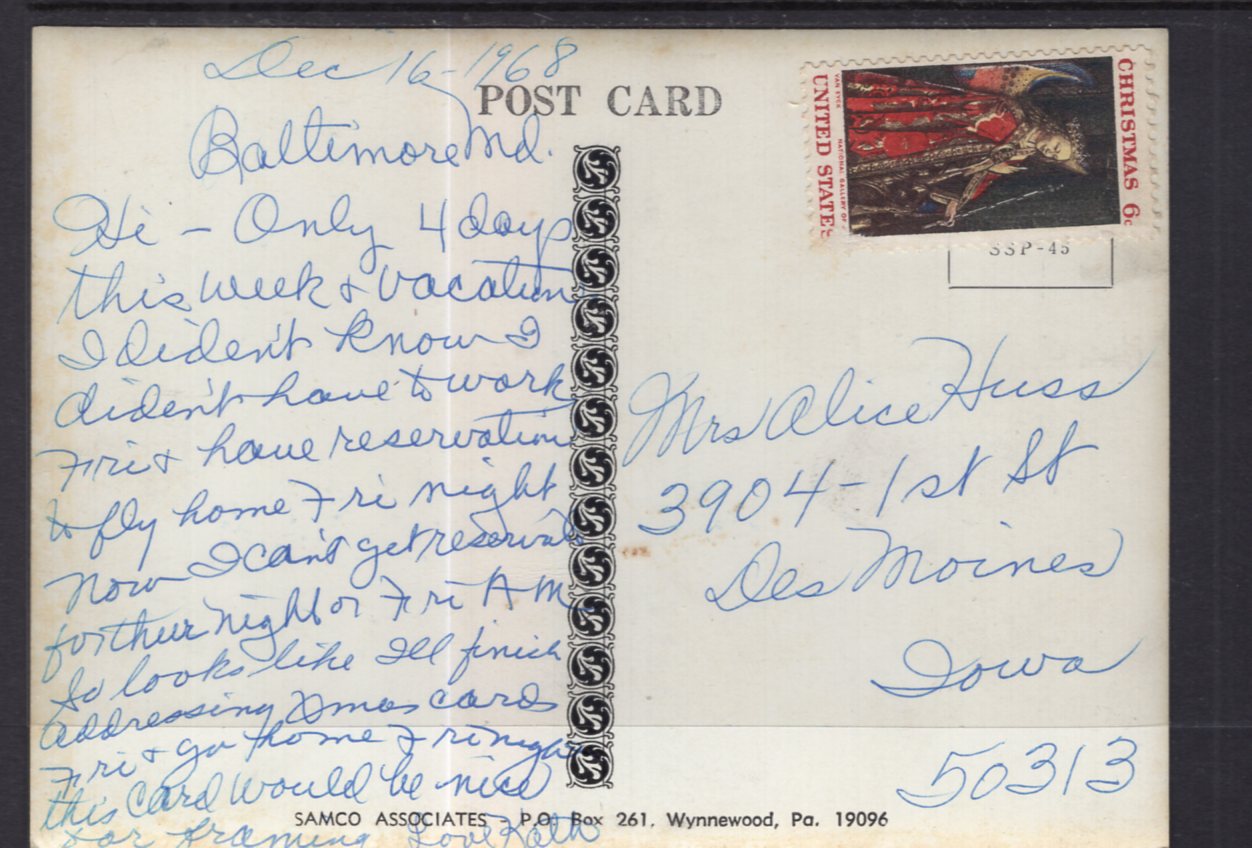 Dec 16-1968
POST CARD
Baltimore Md.
Hi - Only 4 days
this week & vacation
I dident know I
dident have to work
Fri & have reservation
to fly home Fri night
now I can't get reservats
for thur night or Fri AM
So looks like Ill finish
addressing Xmas cards
Fri & go home Fri night
this card would be nice
for framing Love Kath
CHRISTMAS 6c
VAN EYCK NATIONAL GALLERY OF
UNITED STATES
SSP-45
Mrs Alice Huss
3904-1st St
Des Moines
Iowa
50313
SAMCO ASSOCIATES P.O. Box 261, Wynnewood, Pa. 19096